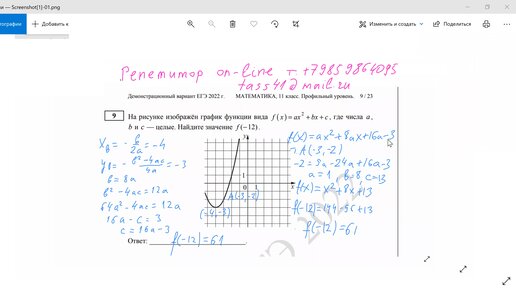 и — Screenshot[1]-01.png
тографии
Добавить к
Изменить и создать
Поделиться
Репетитор on-line т +79859864095
tass41@mail.ru
Демонстрационный вариант ЕГЭ 2022 г. МАТЕМАТИКА, 11 класс. Профильный уровень. 9 / 23
9
На рисунке изображён график функции вида f(x)=ax²+bx+c, где числа a,
b и c — целые. Найдите значение f(−12).
x₀ = -b/2a = -4
y₀ = -b²-4ac/4a = -3
b = 8a
b²-4ac = 12a
64a²-4ac = 12a
16a - c = 3
c = 16a-3
1
0 1
x
A(-3,-2)
(-4,-3)
f(x)=ax²+8ax+16a-3
A(-3,-2)
-2=9a-24a+16a-3
a=1 b=8 c=13
f(x)=x²+8x+13
f(-12)=144-96+13
f(-12)=61
Ответ: f(-12)=61